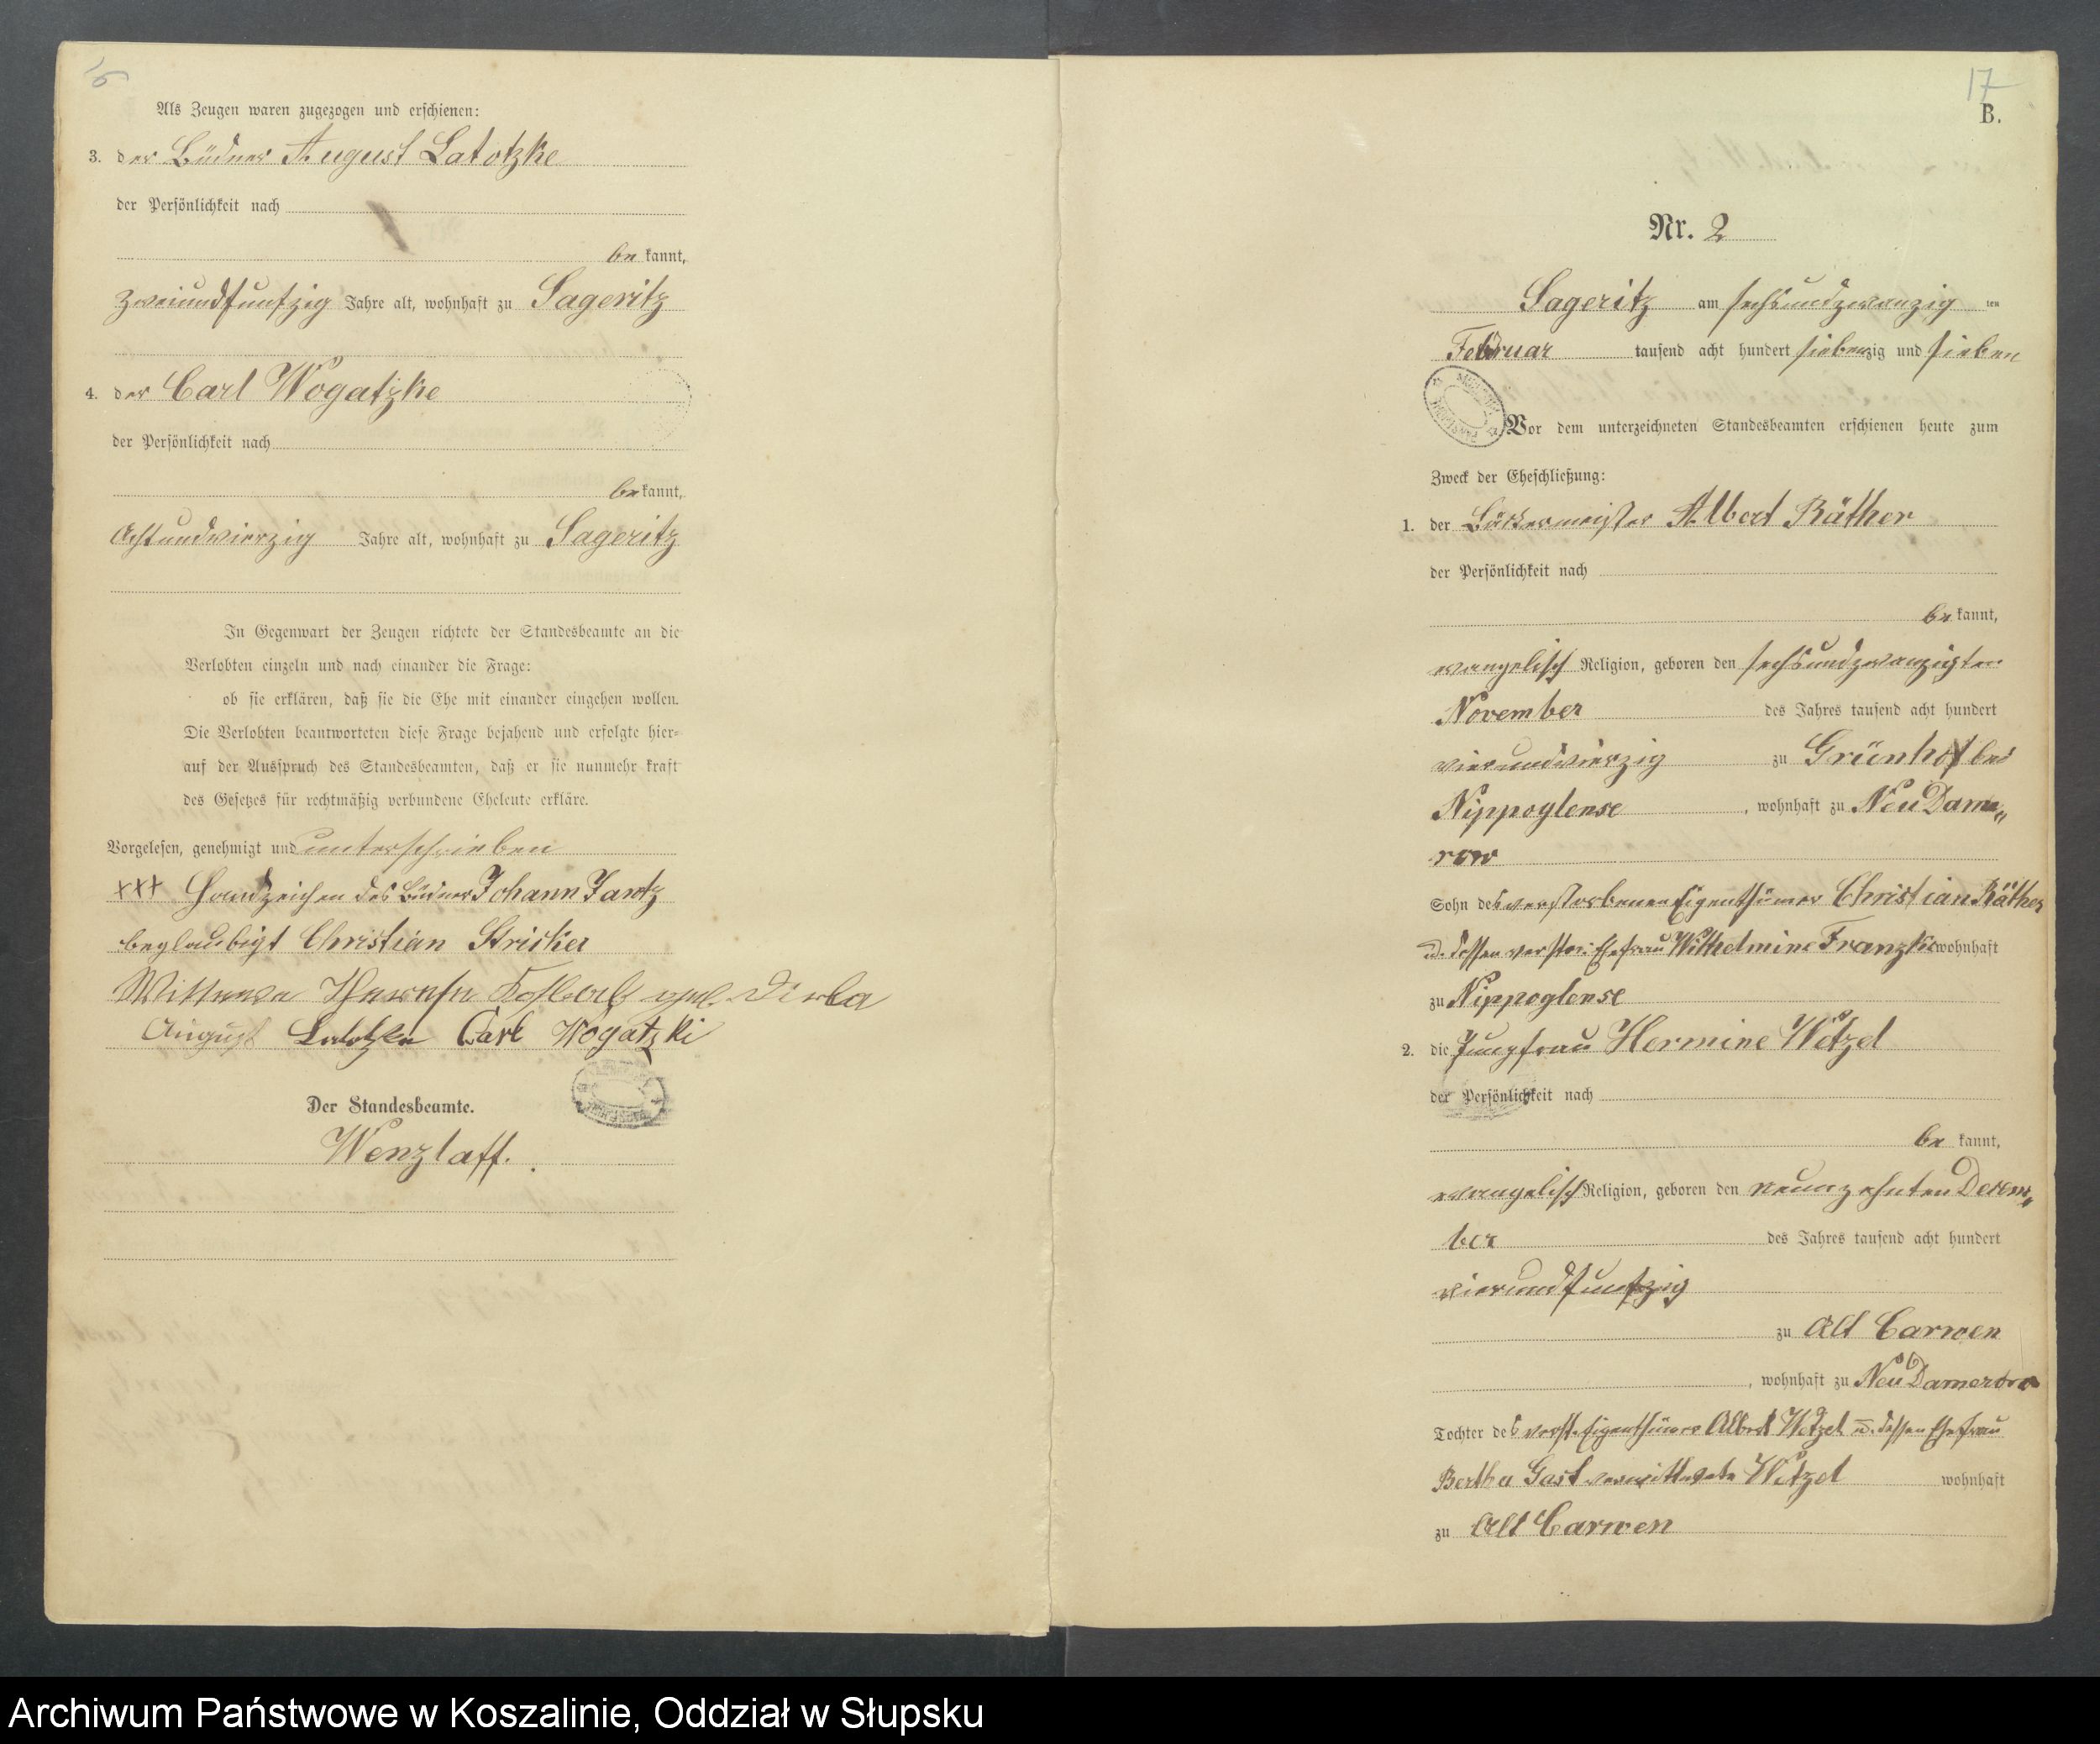 Als Zeugen waren zugezogen und erschienen:
3. der Büdner August Latotzke
der Persönlichkeit nach
be kannt,
zweiundfunfzig Jahre alt, wohnhaft zu Sageritz
4. der Carl Wogatzke
der Persönlichkeit nach
be kannt,
Achtundvierzig Jahre alt, wohnhaft zu Sageritz
In Gegenwart der Zeugen richtete der Standesbeamte an die
Verlobten einzeln und nach einander die Frage:
ob sie erklären, daß sie die Ehe mit einander eingehen wollen.
Die Verlobten beantworteten diese Frage bejahend und erfolgte hier=
auf der Ausspruch des Standesbeamten, daß er sie nunmehr kraft
des Gesetzes für rechtmäßig verbundene Eheleute erkläre.
Vorgelesen, genehmigt und unterschrieben
+++ Handzeichen des Büdner Johann Jantz
beglaubigt Christian Stricker
Wittwe geb.
August Latotzke Carl Wogatzki
Der Standesbeamte.
Wenzlaff.
17
B.
Nr. 2
Sageritz am sechsundzwanzig ten
Februar tausend acht hundert siebenzig und sieben
Vor dem unterzeichneten Standesbeamten erschienen heute zum
Zweck der Eheschließung:
1. der Bäckermeister Albert Räther
der Persönlichkeit nach
be kannt,
evangelisch Religion, geboren den sechsundzwanzigten
November des Jahres tausend acht hundert
vierundvierzig zu Grünhof bei
Nippoglense, wohnhaft zu Neu Dame„
row
Sohn des verstorbenen Eigenthümer Christian Räther
u. dessen verstor. Ehefrau Wilhelmine Franzke wohnhaft
zu Nippoglense
2. die Jungfrau Hermine Wetzel
der Persönlichkeit nach
be kannt,
evangelisch Religion, geboren den neunzehnten Dezem„
ber des Jahres tausend acht hundert
vierundfunfzig
zu Alt Carwen
, wohnhaft zu Neu Damerow
Tochter des verst. Eigenthümer Albert Wetzel u. dessen Ehefrau
Bertha Gast verwittwete Wetzel wohnhaft
zu Alt Carwen
Archiwum Państwowe w Koszalinie, Oddział w Słupsku